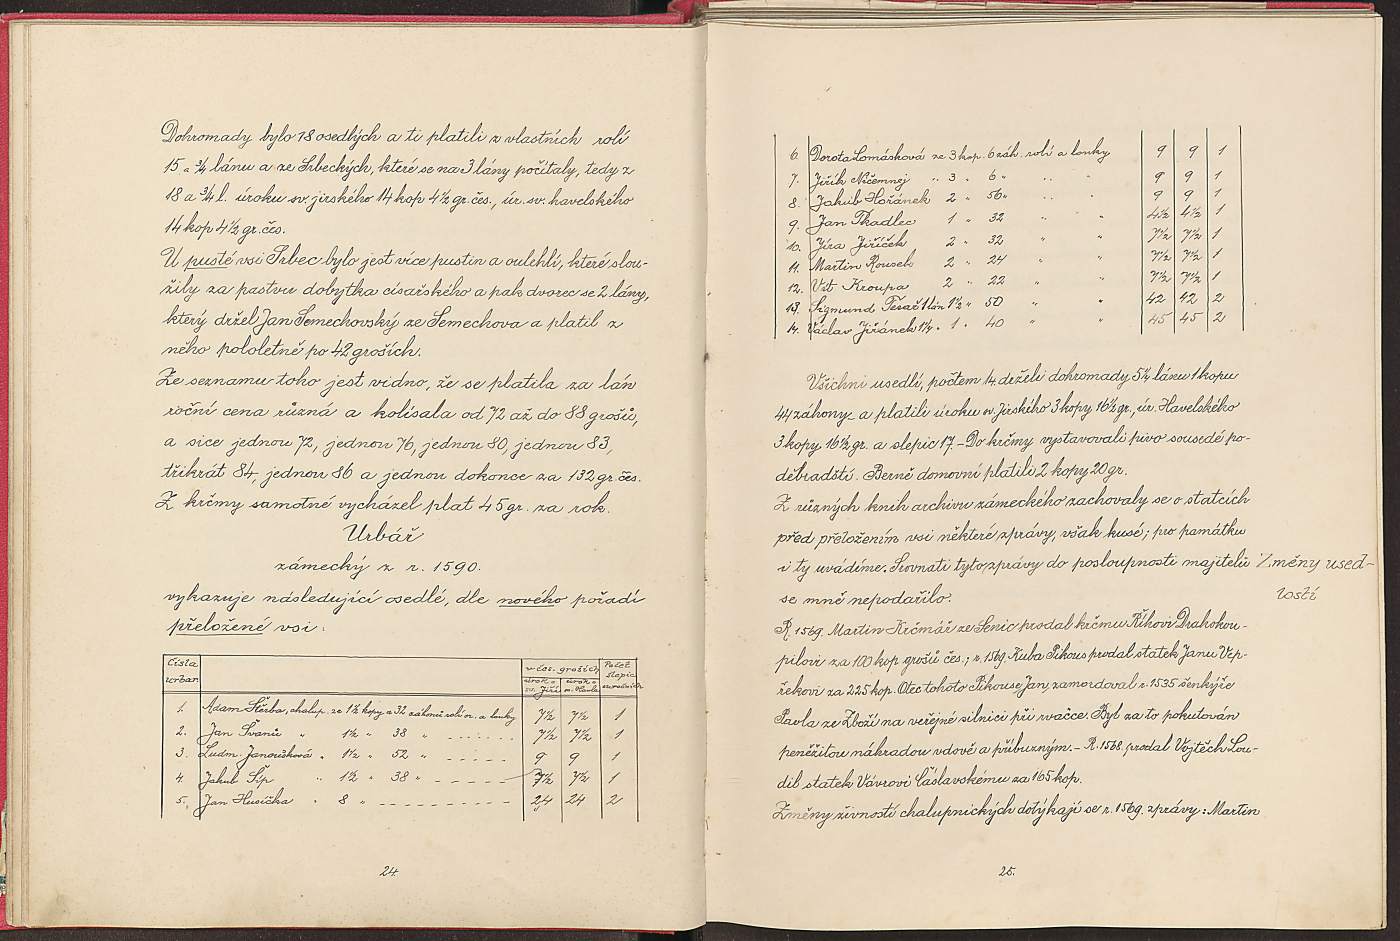 Dohromady bylo 18 osedlých a ti platili z vlastních rolí
15 a ¾ lánu a ze Srbeckých, které se na 3 lány počítaly, tedy z
18 a ¾ l. úroku sv. jirského 14 kop 4½ gr. čes., úr. sv. havelského
14 kop 4½ gr. čes.
U pusté vsi Srbec bylo jest více pustin a oulehlí, které slou-
žily za pastvu dobytka císařského a pak dvorec se 2 lány,
který držel Jan Semechovský ze Semechova a platil z
něho pololetně po 42 groších.
Ze seznamu toho jest vidno, že se platila za lán
roční cena různá a kolísala od 72 až do 88 grošů,
a sice jednou 72, jednou 76, jednou 80, jednou 83,
třikrát 84, jednou 86 a jednou dokonce za 132 gr. čes.
Z krčmy samotné vycházel plat 45 gr. za rok.
Urbář
zámecký z r. 1590.
vykazuje následující osedlé, dle nového pořadí
přeložené vsi:
Čísla urbar. v čes. groších Počet slepic
úrok o sv. Jiří úrok o sv. Havla
1. Adam Štěrba, chalup. ze 1½ kopy a 32 záhonů rolí or. a louky 7½ 7½ 1
2. Jan Švanů " 1½ " 38 " 7½ 7½ 1
3. Ludm. Janoušková " 1½ " 52 " 9 9 1
4. Jakub Šíp " 1½ " 38 " 7½ 7½ 1
5. Jan Husička " 8 " 24 24 2
24.
6. Dorota Lomásková ze 3 kop. 6 záh. rolí a louky 9 9 1
7. Jiřík Ničemnej " 3 " 6 " " " 9 9 1
8. Jakub Hořánek 2 " 56 " " " 9 9 1
9. Jan Tkadlec 1 " 32 " " 4½ 4½ 1
10. Jíra Jiříček 2 " 32 " " 7½ 7½ 1
11. Martin Rousek 2 " 24 " " 7½ 7½ 1
12. Vít Kroupa 2 " 22 " " 7½ 7½ 1
13. Sigmund Tesař 1 lán 1½ " 50 " " 42 42 2
14. Václav Jiřánek 1¼ " 1 " 40 " " 45 45 2
Všichni usedlí, počtem 14 drželi dohromady 5¼ lánu 1 kopu
44 záhony a platili úroku sv. Jirského 3 kopy 16½ gr., úr. Havelského
3 kopy 16½ gr. a slepic 17. – Do krčmy vystavovali pivo sousedé po-
děbradští. Berně domovní platili 2 kopy 20 gr.
Z různých knih archivu zámeckého zachovaly se o statcích
před přeložením vsi některé zprávy, však kusé; pro památku
i ty uvádíme. Srovnati tyto zprávy do posloupnosti majitelů
se mně nepodařilo.
Změny used-
lostí
R. 1569. Martin Krčmář ze Senic prodal krčmu Říhovi Drahokou-
pilovi za 100 kop grošů čes.; r. 1569. Kuba Pikous prodal statek Janu Vep-
řekovi za 225 kop. Otec tohoto Pikouse Jan, zamordoval r. 1535 šenkýře
Pavla ze Zboží na veřejné silnici při rvačce. Byl za to pokutován
peněžitou náhradou vdově a příbuzným. – R. 1568. prodal Vojtěch Lou-
dil statek Vávrovi Čáslavskému za 165 kop.
Změny živností chalupnických dotýkají se r. 1569. zprávy: Martin
25.